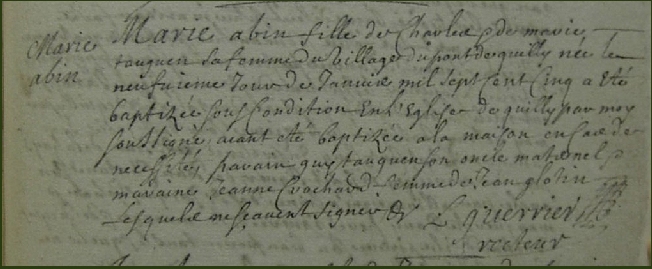 Marie
abin
Marie abin fille de Charles & de marie
tanguen sa femme du Village du pont de quilly née le
neufieme Jour de Janvier mil Sept Cent Cinq a été
baptizée sous Condition En L'Eglise de quilly par moy
soussigné aiant eté baptizée a la maison en cas de
necessité, parain guy tanguen son oncle maternel &
maraine Jeanne femme de Jean glohn
Lesquels ne sçavent signer &
L. guerrier
recteur